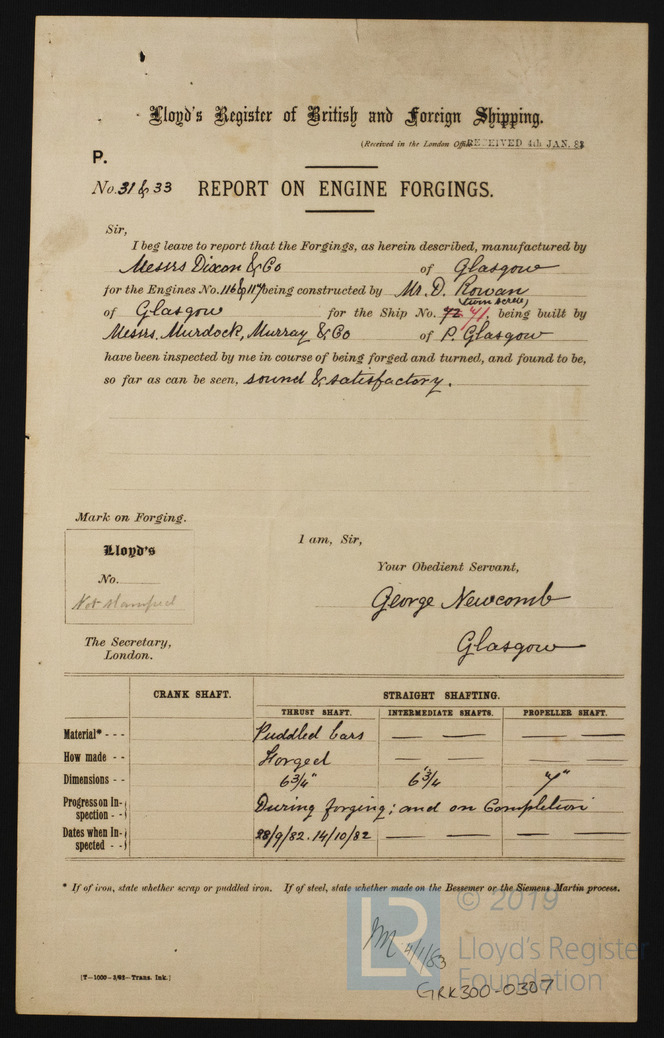 Lloyd's Register of British and Foreign Shipping.
(Received in the London Office RECEIVED 4th JAN. 83
P.
No. 31 & 33 REPORT ON ENGINE FORGINGS.
Sir,
I beg leave to report that the Forgings, as herein described, manufactured by
Messrs Dixon & Co of Glasgow
for the Engines No. 116 & 117 being constructed by Mr. D. Rowan
(twin screw)
of Glasgow for the Ship No. 42 41. being built by
Messrs. Murdock, Murray & Co of P. Glasgow
have been inspected by me in course of being forged and turned, and found to be,
so far as can be seen, sound & satisfactory.
Mark on Forging.
Lloyd's
No.
Not stamped
I am, Sir,
Your Obedient Servant,
George Newcomb
Glasgow
The Secretary,
London.
CRANK SHAFT. STRAIGHT SHAFTING.
THRUST SHAFT. INTERMEDIATE SHAFTS. PROPELLER SHAFT.
Material* - - - Puddled bars — — — —
How made - - Forged — — — —
Dimensions - - 6 3/4" 6 3/4 7"
Progress on In-
spection - - During forging; and on Completion
Dates when In-
spected - - 28/9/82. 14/10/82 — — — —
* If of iron, state whether scrap or puddled iron. If of steel, state whether made on the Bessemer or the Siemens Martin process.
© 2019
LR
Lloyd's Register
Foundation
4/1/83
GRK300-0307
[T—1000—3/82—Trans. Ink.]